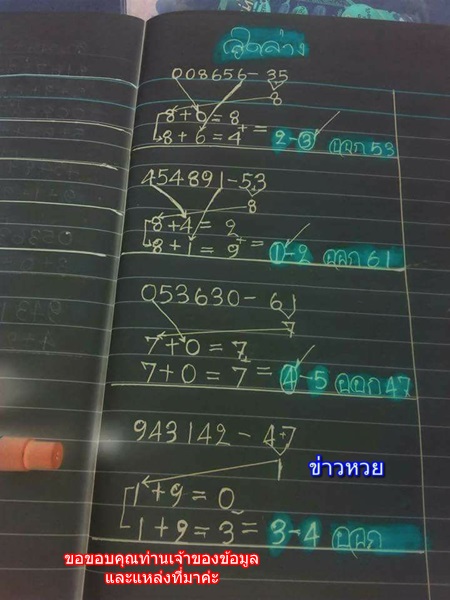 สูตรล่าง
008656-35
8
8+0=8
8+6=4 + = 2-3 ออก 53
454891-53
8
8+4=2
8+1=9 + = 1-2 ออก 61
053630-61
7
7+0=7
7+0=7 + = 4-5 ออก 47
943142-4+7
1
ข่าวหวย
1+9=0
1+9=3= 3-4 ออก
ขอขอบคุณท่านเจ้าของข้อมูล
และแหล่งที่มาค่ะ